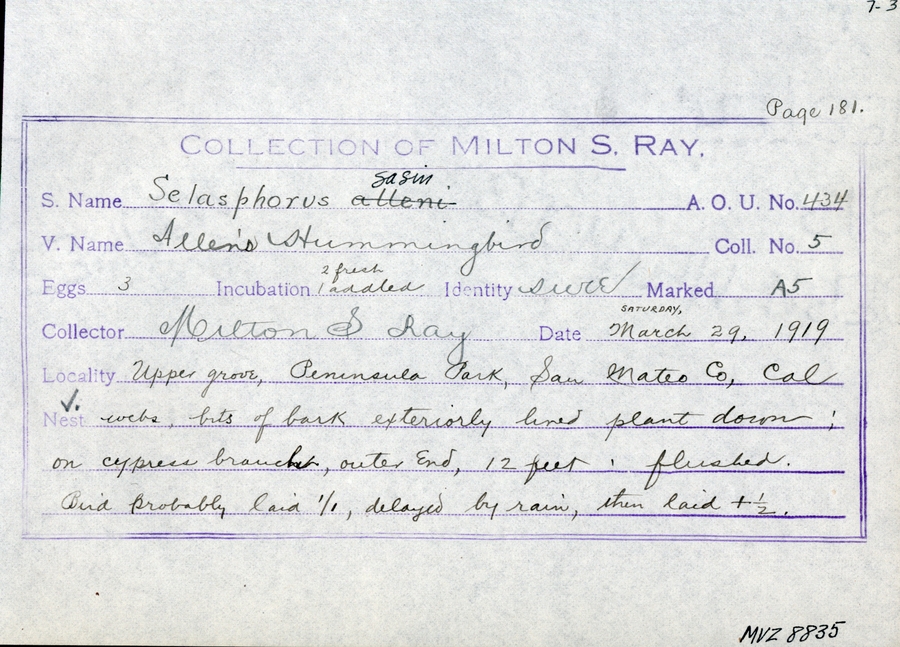 7-3
Page 181.
COLLECTION OF MILTON S. RAY.
sasin
S. Name Selasphorus alleni A. O. U. No. 434
V. Name Allen's Hummingbird Coll. No. 5
2 fresh
Eggs 3 Incubation 1 addled Identity sure Marked A5
SATURDAY,
Collector Milton S Ray Date March 29, 1919
Locality Upper grove, Peninsula Park, San Mateo Co, Cal
Nest webs, bits of bark exteriorly lined plant down;
on cypress branchlet, outer End, 12 feet; flushed.
Bird probably laid 1/1, delayed by rain, then laid + 1/2.
MVZ 8835